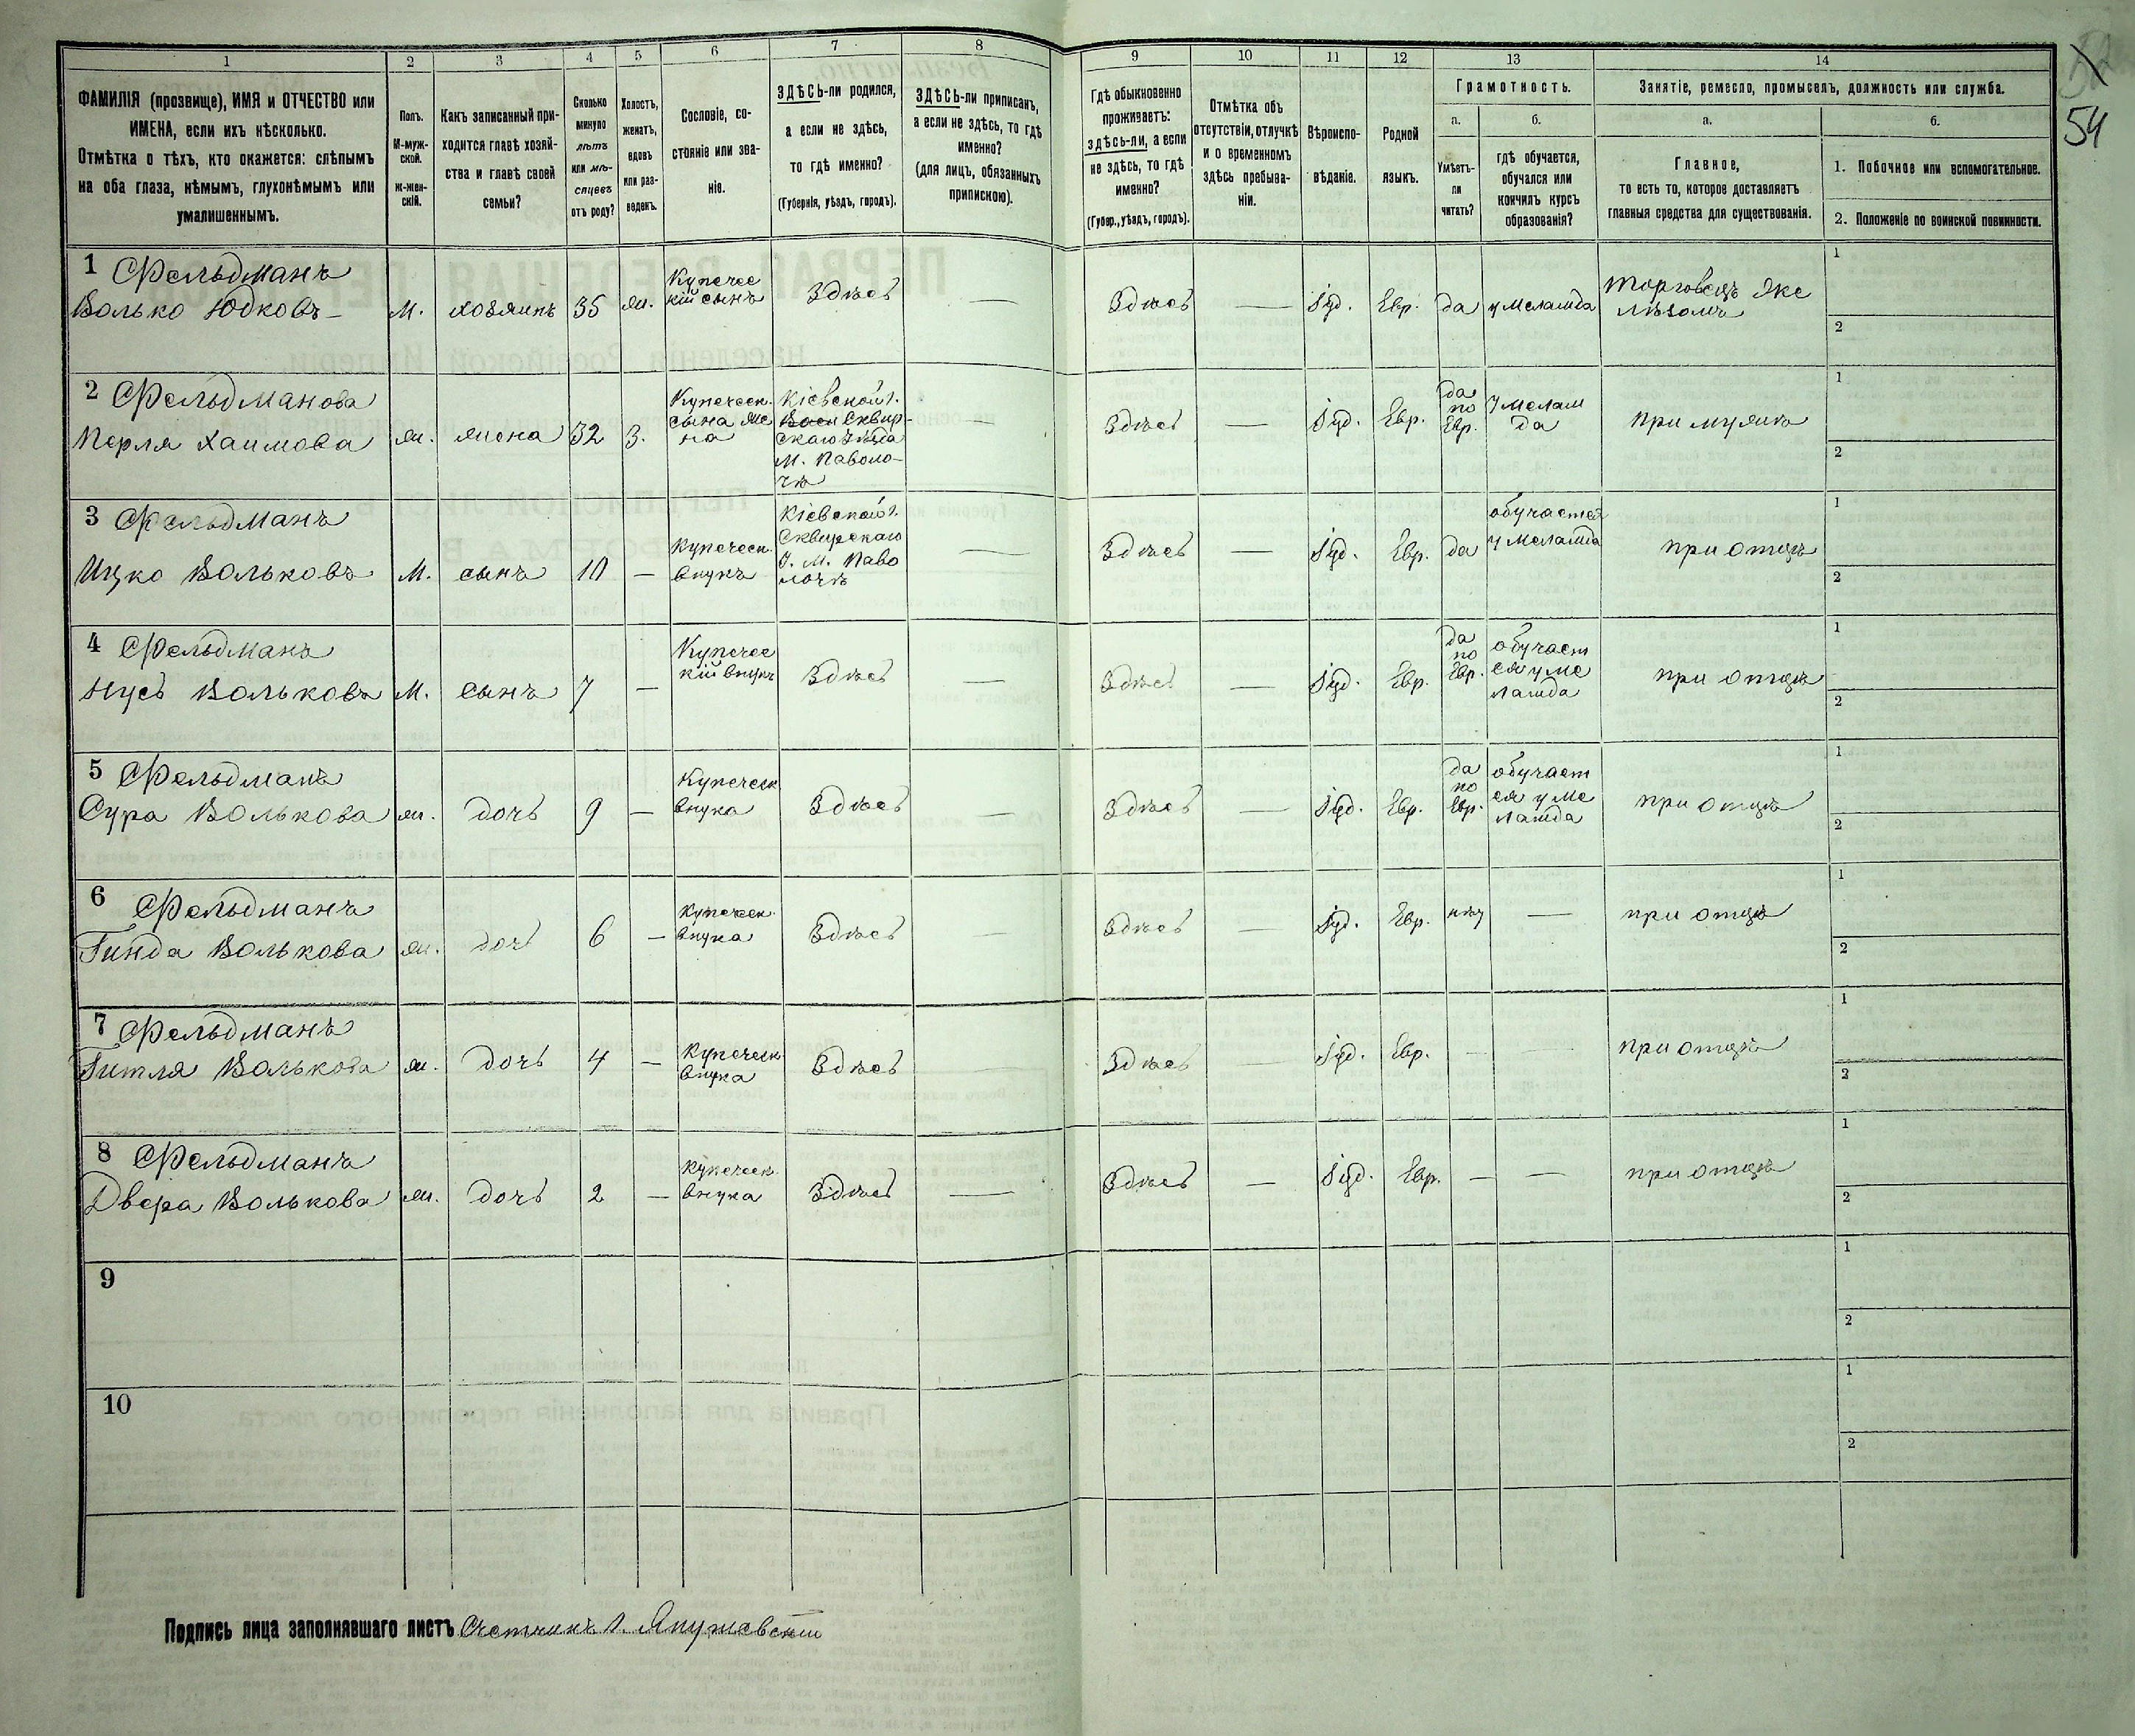 54
1 2 3 4 5 6 7 8 9 10 11 12 13 14
ФАМИЛІЯ (прозвище), ИМЯ и ОТЧЕСТВО или
ИМЕНА, если ихъ нѣсколько.
Отмѣтка о тѣхъ, кто окажется: слѣпымъ
на оба глаза, нѣмымъ, глухонѣмымъ или
умалишеннымъ.
Полъ.
М-муж-
ской.
ж-жен-
скій.
Какъ записанный при-
ходится главѣ хозяй-
ства и главѣ своей
семьи?
Сколько
минуло
лѣтъ
или мѣ-
сяцевъ
отъ роду?
Холостъ,
женатъ,
вдовъ
или раз-
веденъ.
Сословіе, со-
стояніе или зва-
ніе.
ЗДѢСЬ-ли родился,
а если не здѣсь,
то гдѣ именно?
(Губернія, уѣздъ, городъ).
ЗДѢСЬ-ли приписанъ,
а если не здѣсь, то гдѣ
именно?
(для лицъ, обязанныхъ
припискою).
Гдѣ обыкновенно
проживаетъ:
здѣсь-ли, а если
не здѣсь, то гдѣ
именно?
(Губер., уѣздъ, городъ).
Отмѣтка объ
отсутствіи, отлучкѣ
и о временномъ
здѣсь пребыва-
ніи.
Вѣроиспо-
вѣданіе.
Родной
языкъ.
Грамотность.
а.
Умѣетъ-
ли
читать?
б.
гдѣ обучается,
обучался или
кончилъ курсъ
образованія?
Занятіе, ремесло, промыселъ, должность или служба.
а.
Главное,
то есть то, которое доставляетъ
главныя средства для существованія.
б.
1. Побочное или вспомогательное.
2. Положеніе по воинской повинности.
1 Фельдманъ
Волько Юдковъ
М.
хозяинъ
35
ж.
Купечес
кій сынъ
Здѣсь
—
Здѣсь
—
Іуд.
Евр.
да
у меламда
Торговецъ же
лѣзомъ
1
2
2 Фельдманова
Перля Хаимова
ж.
жена
32
З.
Купеческ.
сына же
на
Кіевской г.
Сквир-
скаго уѣзда
М. Паволо-
чѣ
—
Здѣсь
—
Іуд.
Евр.
да
по
Евр.
у мелам
да
при мужѣ
1
2
3 Фельдманъ
Ицко Вольковъ
М.
сынъ
10
—
Купеческ.
внукъ
Кіевской г.
Сквирскаго
у. М. Паво
лочѣ
—
Здѣсь
—
Іуд.
Евр.
да
обучается
у меламда
при отцѣ
1
2
4 Фельдманъ
Нусь Вольковъ
М.
сынъ
7
—
Купечес
кій внукъ
Здѣсь
—
Здѣсь
—
Іуд.
Евр.
да
по
Евр.
обучает
ся у ме
ламда
при отцѣ
1
2
5 Фельдманъ
Сура Волькова
ж.
дочь
9
—
Купеческ
внука
Здѣсь
—
Здѣсь
—
Іуд.
Евр.
да
по
Евр.
обучает
ся у ме
ламда
при отцѣ
1
2
6 Фельдманъ
Гинда Волькова
ж.
дочь
6
—
Купеческ.
внука
Здѣсь
—
Здѣсь
—
Іуд.
Евр.
нѣт
—
при отцѣ
1
2
7 Фельдманъ
Гитля Волькова
ж.
дочь
4
—
Купеческ.
внука
Здѣсь
—
Здѣсь
—
Іуд.
Евр.
—
—
при отцѣ
1
2
8 Фельдманъ
Двера Волькова
ж.
дочь
2
—
Купеческ.
внука
Здѣсь
—
Здѣсь
—
Іуд.
Евр.
—
—
при отцѣ
1
2
9
1
2
10
1
2
Подпись лица заполнявшаго листъ Счетчикъ